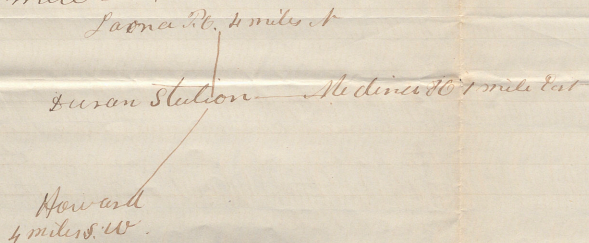 Laona P.O. 4 miles N
Duran Station — Medina PO 1 mile East
Howard
4 miles S. W.